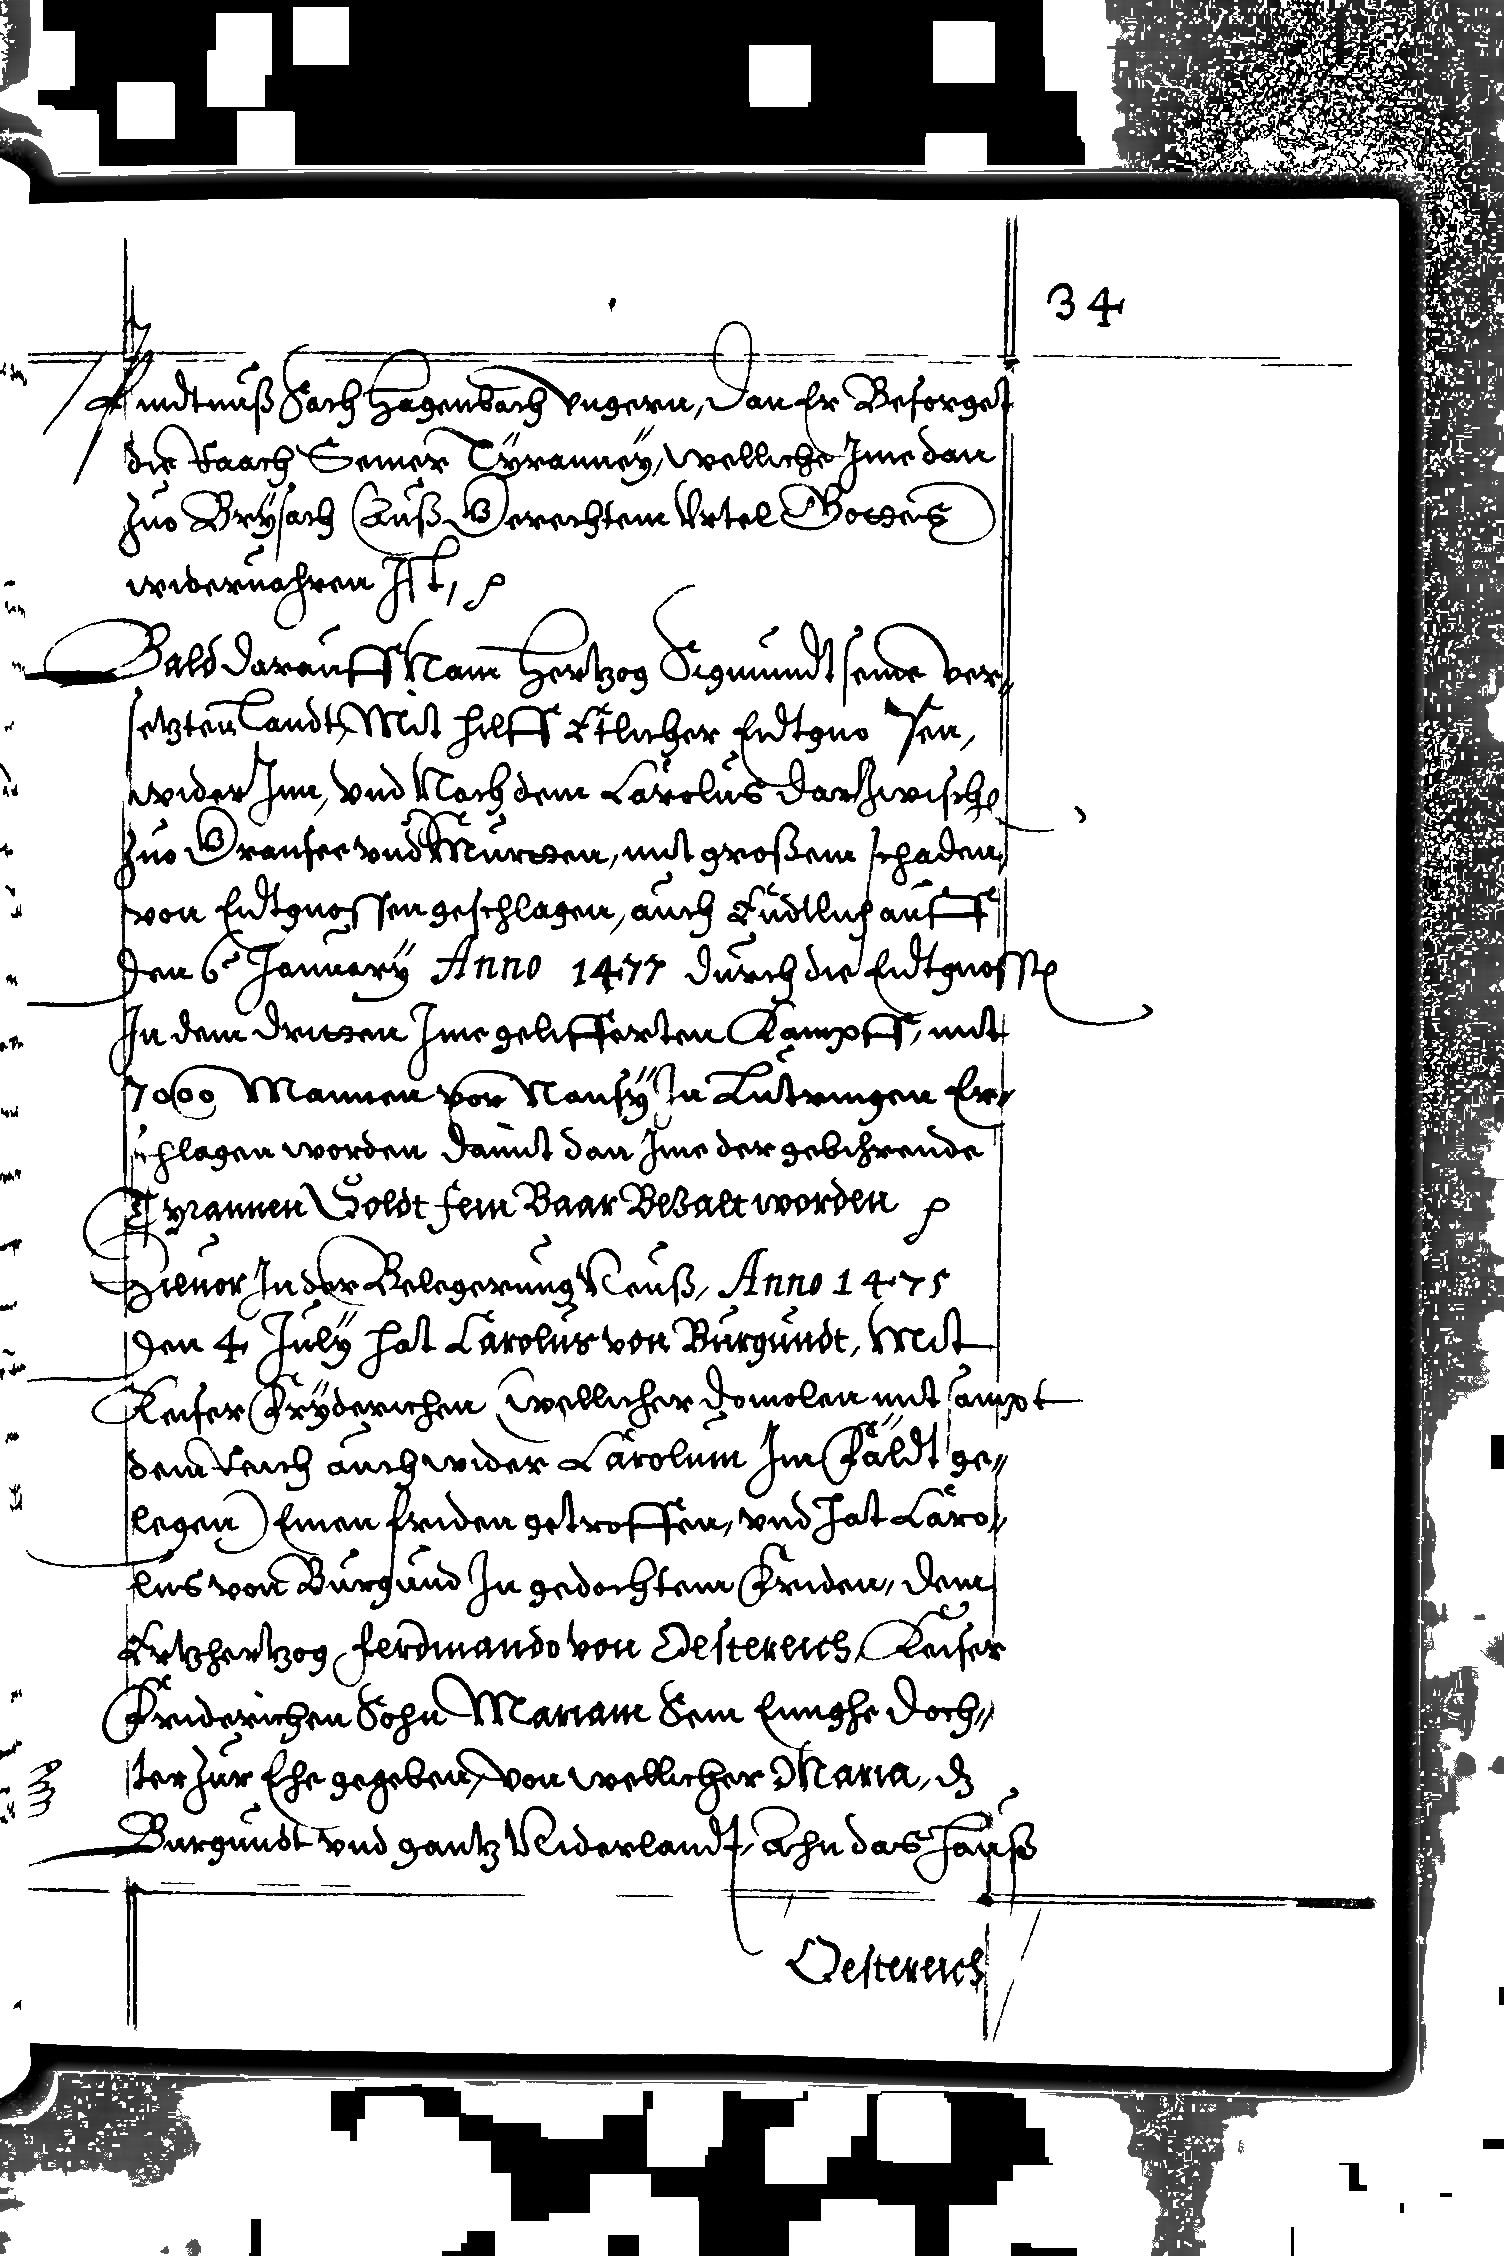 34
Pündtnuß Sach Hagenbach Vngern, Dan Er Besorget
die Raach Seiner Tÿranneÿ, Welliche Jme dan
Zuo Brÿsach Auß Gerechtem Vrtel Gottes
widervahren Jst,
Bald darauff Nam Hertzog Sigmundt seine ver„
setzten Landt, Mit hilff Etlicher Eidtgnossen,
wider Jnn, vnd Nach dem Carolus darzwischen
Zuo Gransee vnd Murtten, mit großem schaden,
von Eidtgnossen geschlagen, auch Endtlich auff
den 6 Januarÿ Anno 1477 durch die Eidtgnossen
Jn dem dritten Jme gelifferten Kampff, mit
7000 Mannen vor Nansÿ Jn Lutringen Er„
schlagen worden damit dan Jme der gebihrende
Tyrannen Soldt fein Baar Bezalt worden
Zuuor Jn der Belegerung Neuß, Anno 1475
den 4 Julÿ hat Carolus von Burgundt, Mit
Keiser Frÿderichen (wellicher domolen mit sampt
dem Reich auch wider Carolum Jm Fäldt ge„
legen) Einen friden getroffen, vnd hat Caro„
lus von Burgund Jn gedachtem Friden, dem
Ertzhertzog ferdinando von Oestereich, Keiser
Friderichen Sohn Mariam Sein Einighe Doch„
ter Zur Ehe gegeben, von wellicher Maria, dz
Burgundt vnd gantz Niderlandt, Ahn das Hauß
Oestereich